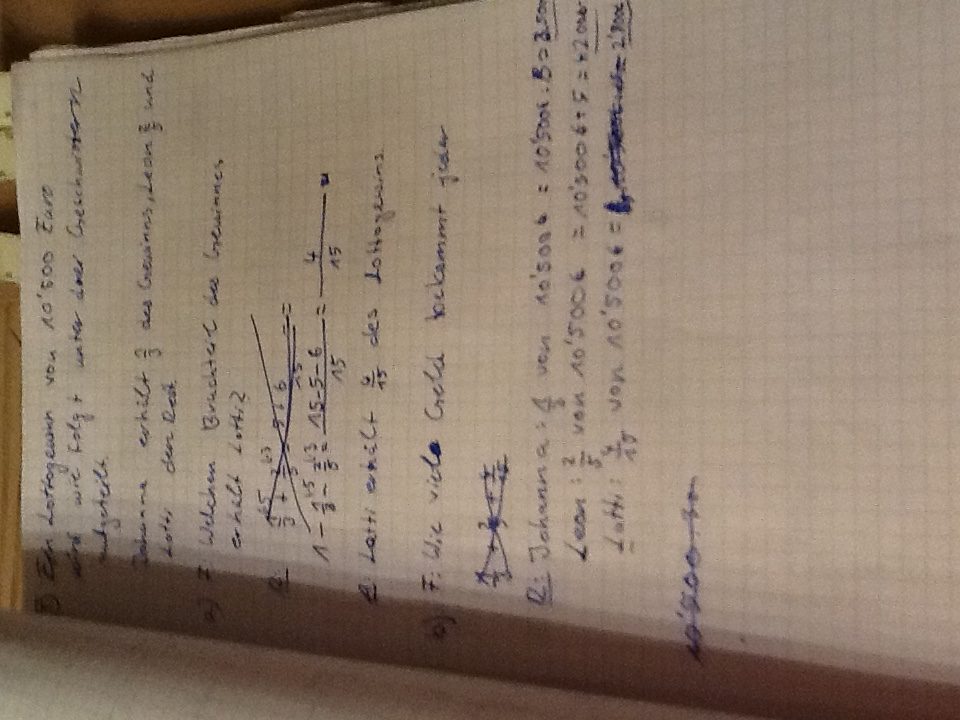 5) Ein Lottogewinn von 10'500 Euro
wird wie folgt unter drei Geschwistern
aufgeteilt
Johanna erhält 1/3 des Gewinns, Leon 2/5 und
Lotti den Rest
a) F: Welchen Bruchteil des Gewinnes
erhält Lotti?
R:
1 - 1/3 - 2/5 = 15-5-6/15 = 4/15
A: Lotti erhält 4/15 des Lottogewinns.
b) F: Wie viele Geld bekommt jeder
R: Johanna: 1/3 von 10'500€ = 10'500€ : 3 =
Leon: 2/5 von 10'500€ = 10'500€ : 5 =
Lotti: 4/15 von 10'500€ =